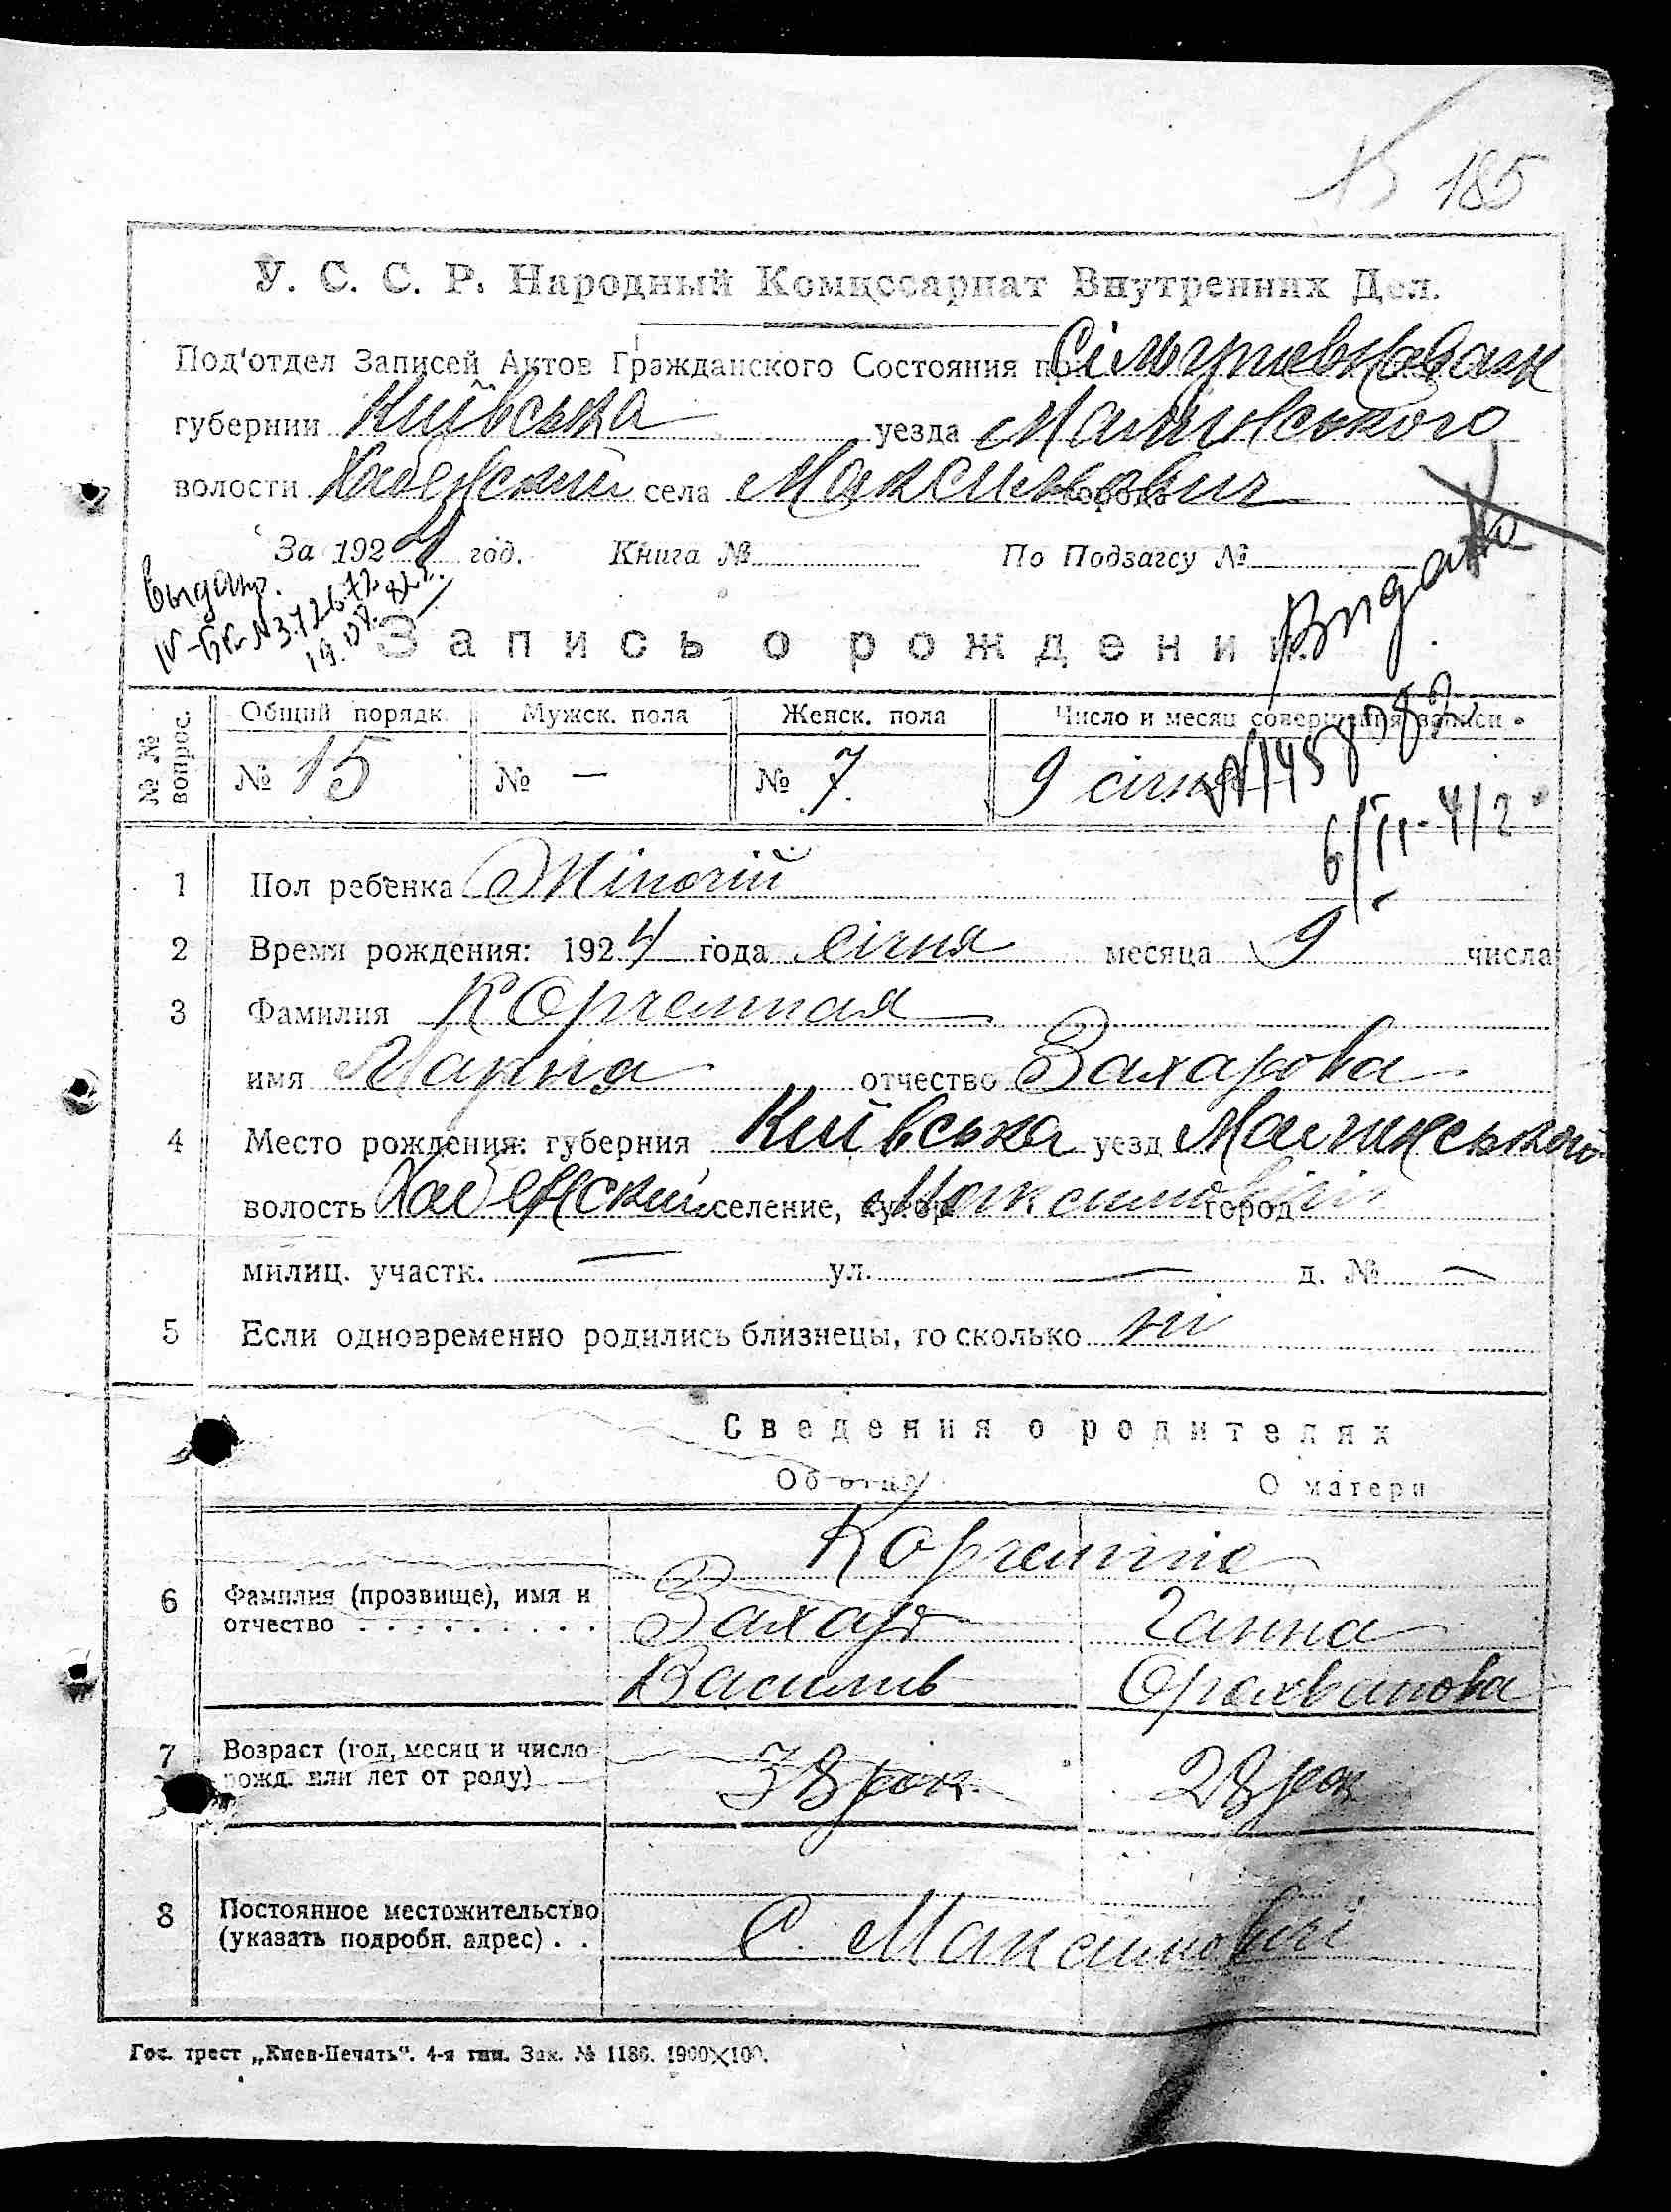 185
У. С. С. Р. Народный Комиссариат Внутренних Дел.
Под'отдел Записей Актов Гражданского Состояния при
губернии Київська уезда Малинського
волости Хабенский села Максимович города
За 1924 год. Книга № По Подзагсу №
Видано
Запись о рождении.
№№ вопрос. Общий порядк. Мужск. пола Женск. пола Число и месяц совершения записи
№ 15 № — № 7 9 січня
1 Пол ребенка Жіночій
2 Время рождения: 1924 года січня месяца 9 числа
3 Фамилия
имя Марія отчество Захарова
4 Место рождения: губерния Київська уезд Малинського
волость Хабенский селение, хутор Максимовичі город
милиц. участк. — ул. — д. № —
5 Если одновременно родились близнецы, то сколько ні
Сведения о родителях
Об отце О матери
6 Фамилия (прозвище), имя и
отчество Захар Ганна
Василів
7 Возраст (год, месяц и число
рожд. или лет от роду) 38 рок. 28 рок
8 Постоянное местожительство
(указать подробн. адрес) . . С. Максимовичі
Гос. трест „Киев-Печать". 4-я тип. Зак. № 1186. 1900×100.